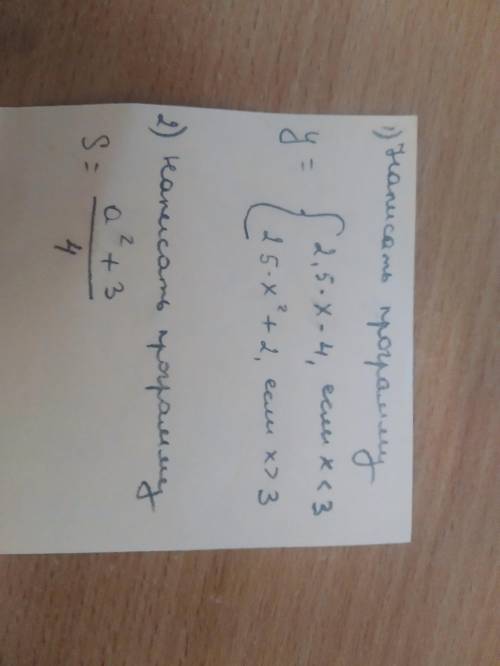 1) Написать программу
y = { 2,5·x-4, если x < 3
25·x²+2, если x > 3
2) написать программу
S = a²+3
4